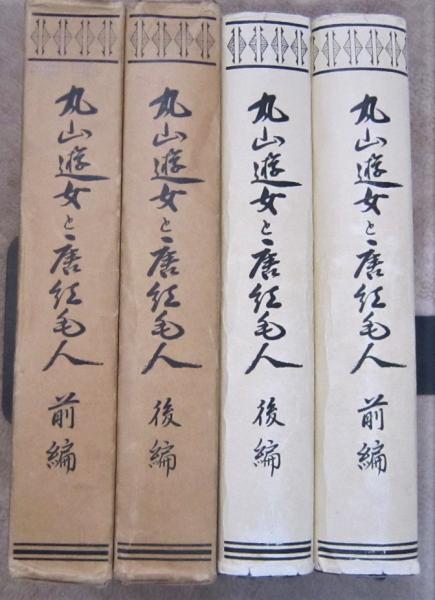 丸山遊女と唐紅毛人 前編
丸山遊女と唐紅毛人 後編
丸山遊女と唐紅毛人 後編
丸山遊女と唐紅毛人 前編